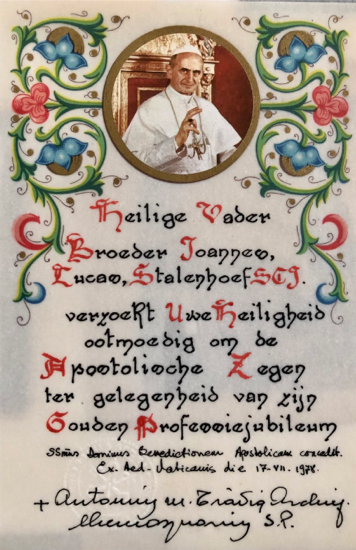 Heilige Vader
Broeder Joannes,
Lucas, Stalenhoef SCJ.
verzoekt Uwe Heiligheid
ootmoedig om de
Apostolische Zegen
ter gelegenheid van zijn
Gouden Professiejubileum
SSmus Dominus Benedictionem Apostolicam
Ex Aed. Vaticanis die 17-VII. 1978.
+ Antonius M.